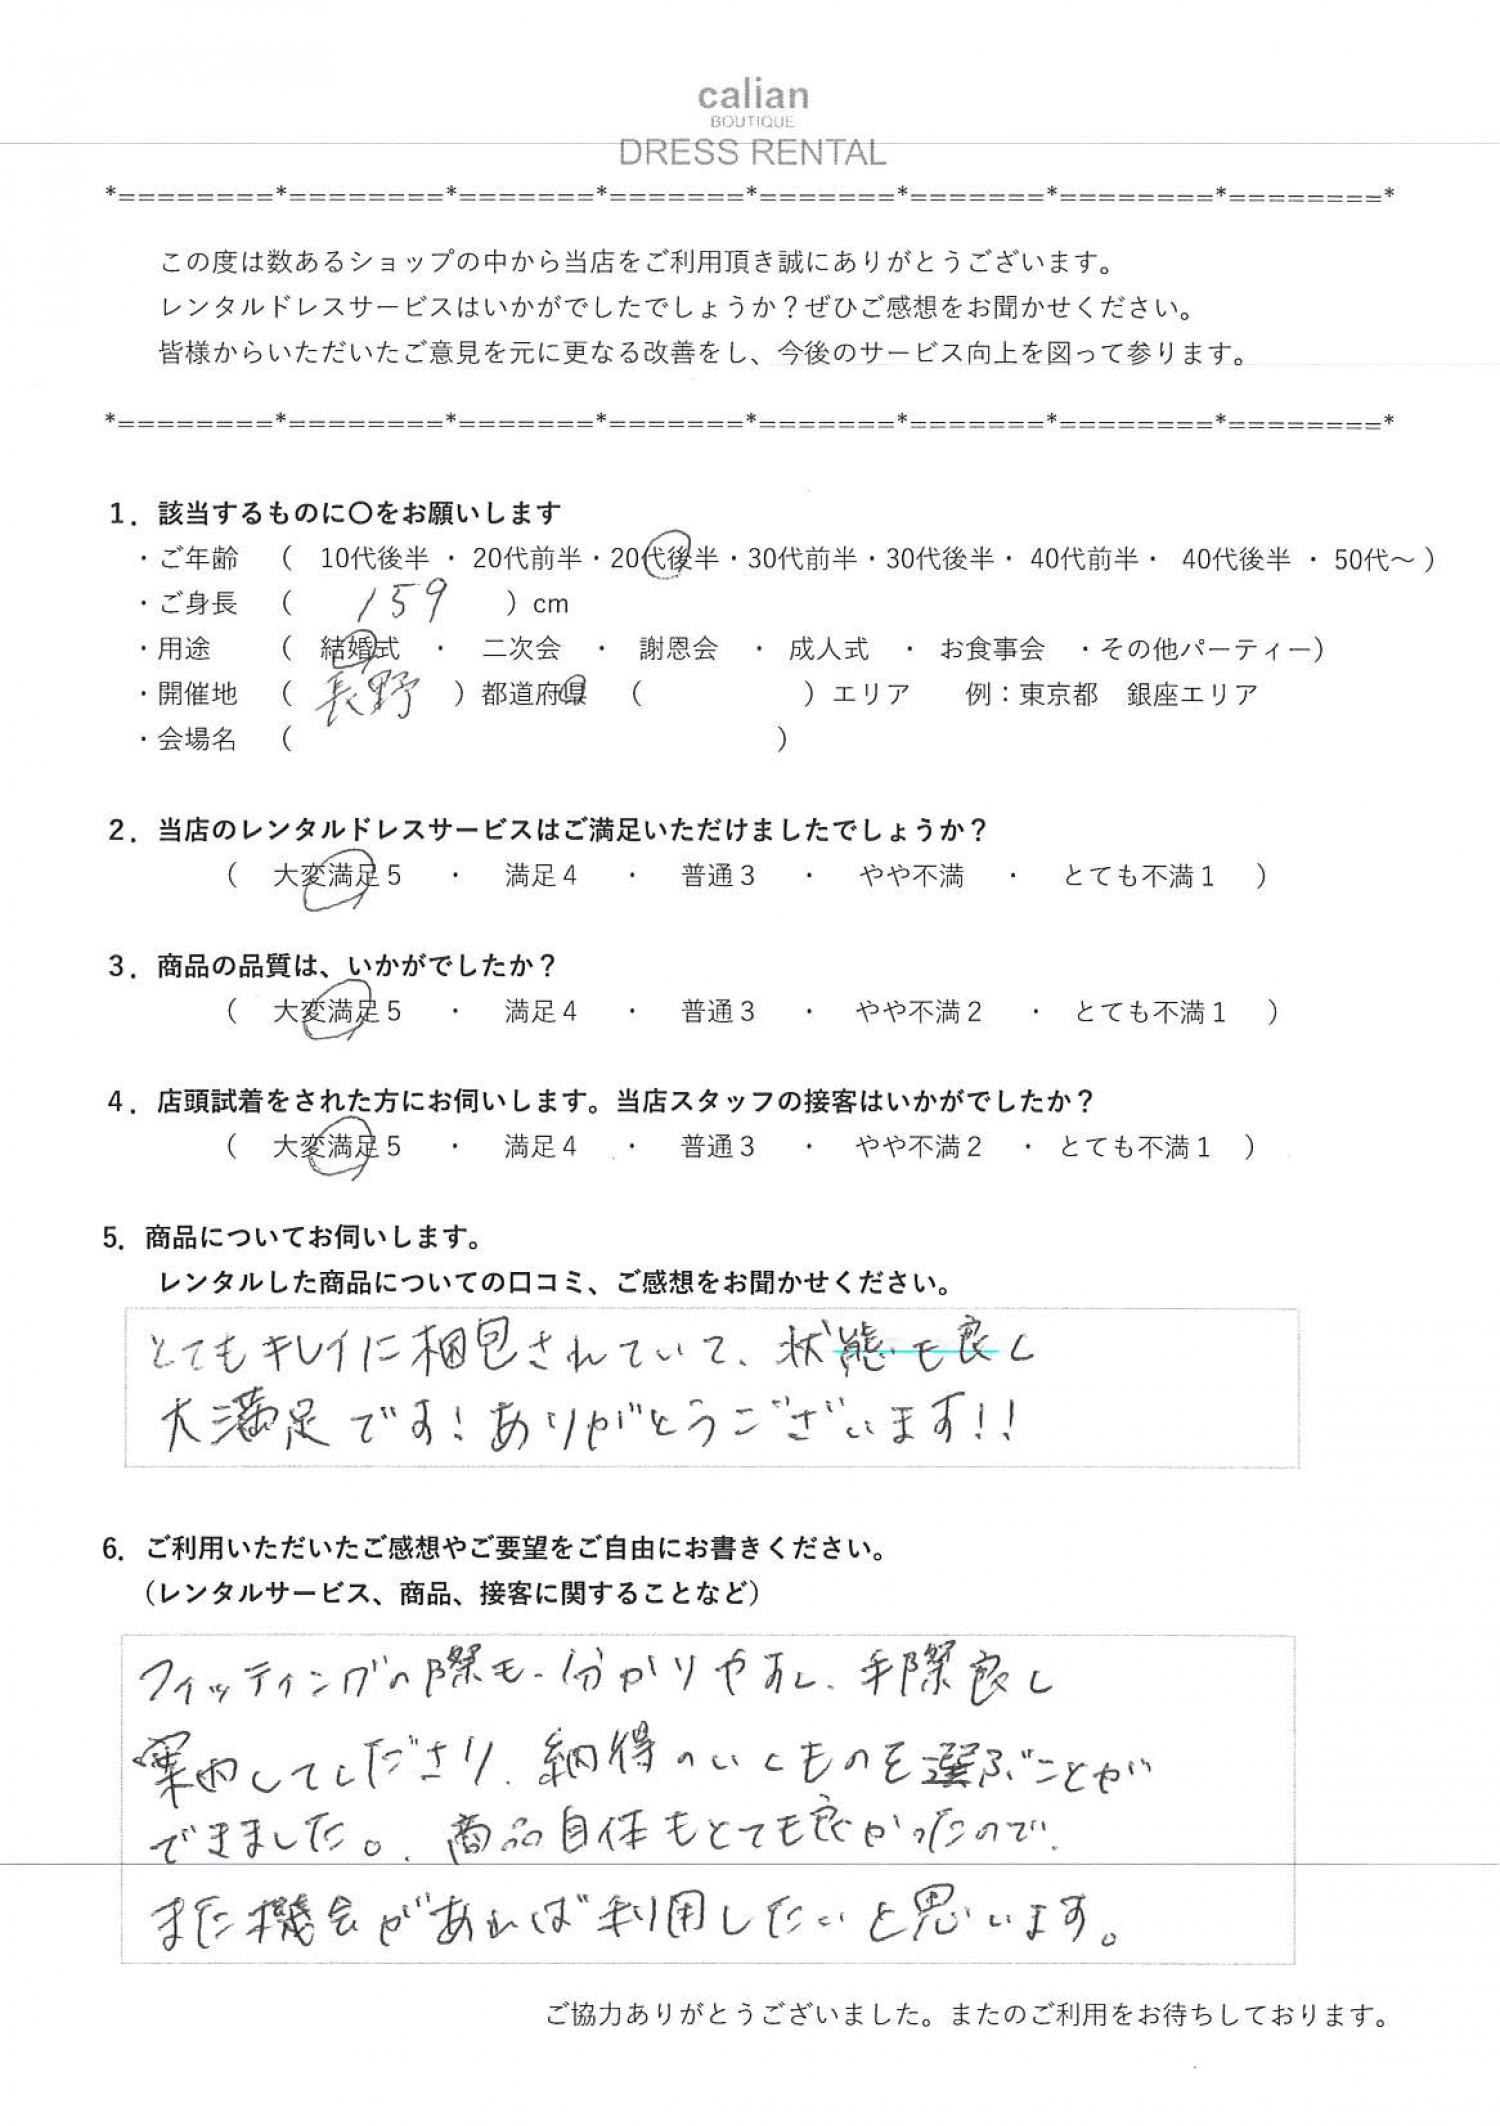 calian
BOUTIQUE
DRESS RENTAL
*========*========*=======*=======*=======*=======*========*========*
この度は数あるショップの中から当店をご利用頂き誠にありがとうございます。
レンタルドレスサービスはいかがでしたでしょうか？ぜひご感想をお聞かせください。
皆様からいただいたご意見を元に更なる改善をし、今後のサービス向上を図って参ります。
*========*========*=======*=======*=======*=======*========*========*
1．該当するものに〇をお願いします
・ご年齢 （ 10代後半 ・ 20代前半・20代後半・30代前半・30代後半・ 40代前半・ 40代後半 ・ 50代～ ）
・ご身長 （ 159 ）cm
・用途 （ 結婚式 ・ 二次会 ・ 謝恩会 ・ 成人式 ・ お食事会 ・その他パーティー）
・開催地 （ 長野 ）都道府県 （ ）エリア 例：東京都 銀座エリア
・会場名 （ ）
2．当店のレンタルドレスサービスはご満足いただけましたでしょうか？
（ 大変満足５ ・ 満足４ ・ 普通３ ・ やや不満 ・ とても不満１ ）
3．商品の品質は、いかがでしたか？
（ 大変満足５ ・ 満足４ ・ 普通３ ・ やや不満２ ・ とても不満１ ）
4．店頭試着をされた方にお伺いします。当店スタッフの接客はいかがでしたか？
（ 大変満足５ ・ 満足４ ・ 普通３ ・ やや不満２ ・ とても不満１ ）
5．商品についてお伺いします。
レンタルした商品についての口コミ、ご感想をお聞かせください。
とてもキレイに梱包されていて、状態も良く
大満足です！ありがとうございます！！
6．ご利用いただいたご感想やご要望をご自由にお書きください。
（レンタルサービス、商品、接客に関することなど）
フィッティングの際も、分かりやすく、手際良く
案内してくださり、納得のいくものを選ぶことが
できました。商品自体もとても良かったので、
また機会があれば利用したいと思います。
ご協力ありがとうございました。またのご利用をお待ちしております。